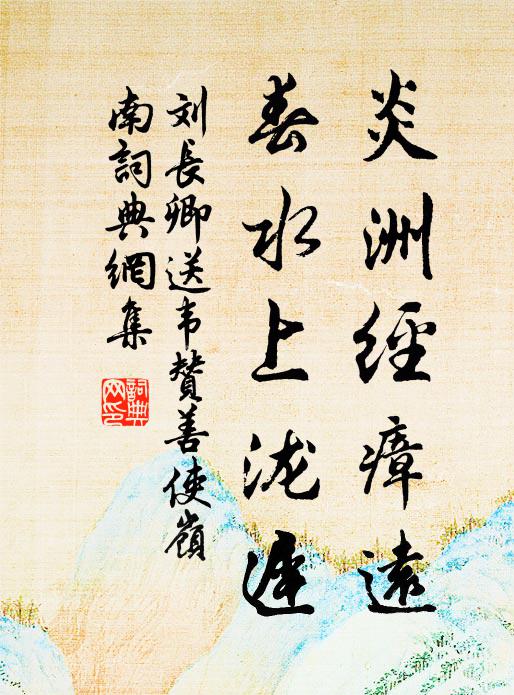 炎洲經瘴遠
春水上泷遲
刘長卿送韦贊善使嶺
南詞典網集
詞典
网印